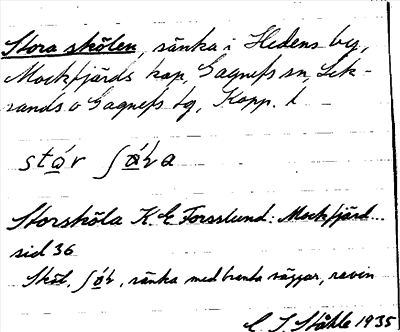 Stora skölen, sänka i Hedens by,
Mockfjärds kap, Gagnefs sn, Lek-
sands o Gagnefs tg, Kopp. l
stor
Storsköla K. E Forsslund: Mockfjärd...
sid 36
Sköl, sänka med branta väggar, ravin
1935